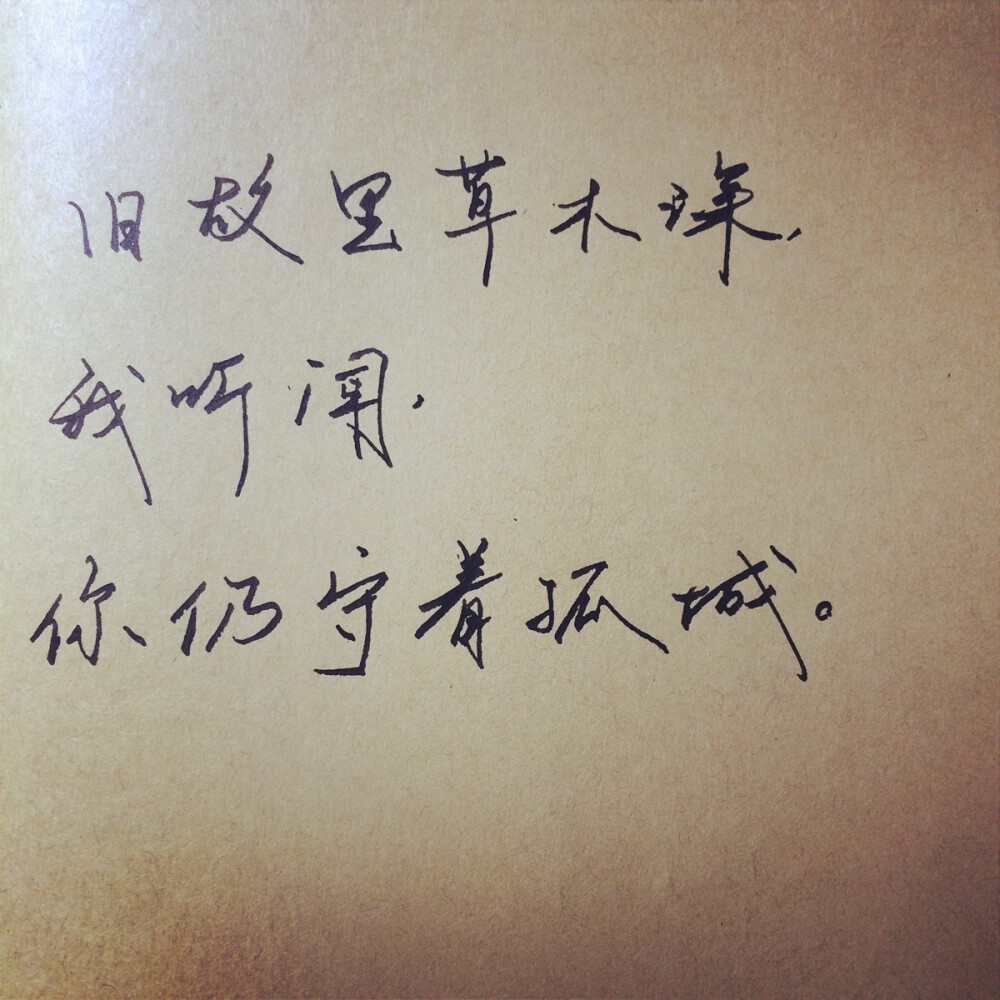 旧故里草木深,
我听闻,
你仍守着孤城。